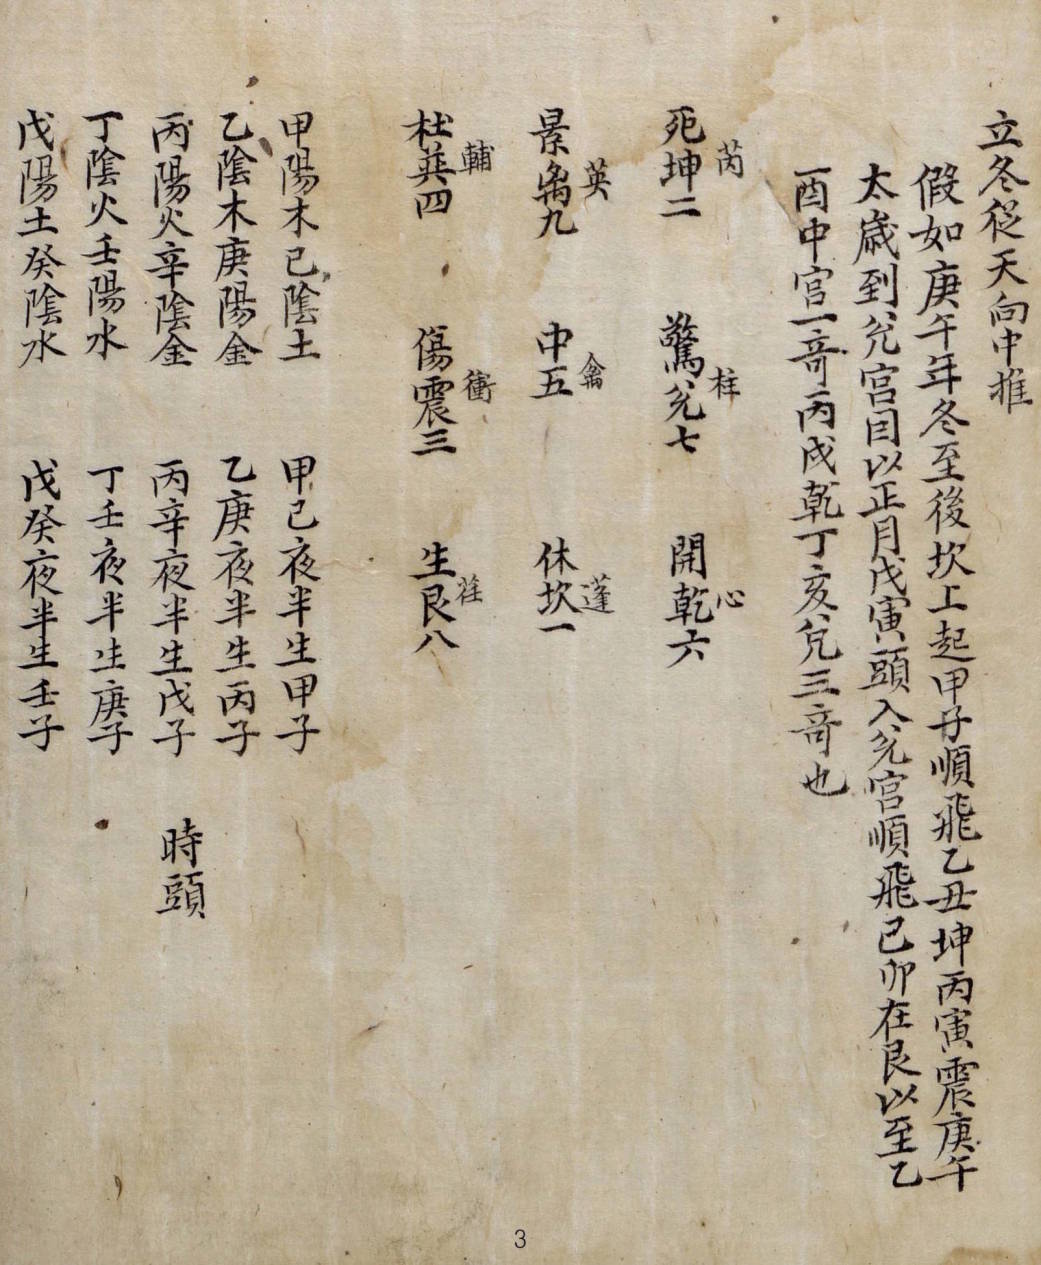 立冬從天向中推
假如庚午年冬至後坎上起甲子順飛乙丑坤丙寅震庚午
太歲到兊宮因以正月戊寅頭入兊宮順飛己卯在艮以至乙
酉中宮一竒丙戌乾丁亥兊三竒也
芮 柱 心
死坤二 驚兊七 開乾六
英 禽 蓬
景離九 中五 休坎一
輔 衝 茬
杜巽四 傷震三 生艮八
甲陽木己陰土 甲己夜半生甲子
乙陰木庚陽金 乙庚夜半生丙子
丙陽火辛陰金 丙辛夜半生戊子 時頭
丁陰火壬陽水 丁壬夜半生庚子
戊陽土癸陰水 戊癸夜半生壬子
3